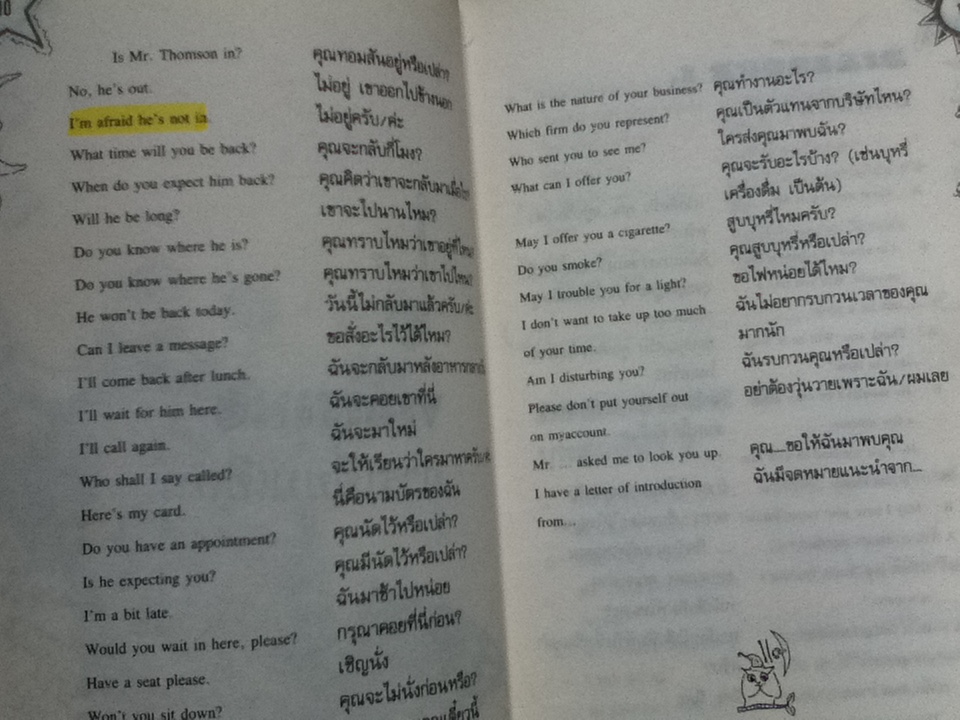 Is Mr. Thomson in?
คุณทอมสันอยู่หรือเปล่า?
No, he's out.
ไม่อยู่ เขาออกไปข้างนอก
I'm afraid he's not in.
ไม่อยู่ครับ/ค่ะ
What time will you be back?
คุณจะกลับกี่โมง?
When do you expect him back?
คุณคิดว่าเขาจะกลับมาเมื่อ
Will he be long?
เขาจะไปนานไหม?
Do you know where he is?
คุณทราบไหมว่าเขาอยู่ที่ไหน
Do you know where he's gone?
คุณทราบไหมว่าเขาไปไหน?
He won't be back today.
วันนี้ไม่กลับมาแล้วครับ/ค่ะ
Can I leave a message?
ขอสั่งอะไรไว้ได้ไหม?
I'll come back after lunch.
ฉันจะกลับมาหลังอาหารกลางวัน
I'll wait for him here.
ฉันจะคอยเขาที่นี่
I'll call again.
ฉันจะมาใหม่
Who shall I say called?
จะให้เรียนว่าใครมาหาครับ/ค่ะ
Here's my card.
นี่คือนามบัตรของฉัน
Do you have an appointment?
คุณนัดไว้หรือเปล่า?
Is he expecting you?
คุณมีนัดไว้หรือเปล่า?
I'm a bit late.
ฉันมาช้าไปหน่อย
Would you wait in here, please?
กรุณาคอยที่นี่ก่อน?
Have a seat please.
เชิญนั่ง
Won't you sit down?
คุณจะไม่นั่งก่อนหรือ?
What is the nature of your business?
คุณทำงานอะไร?
Which firm do you represent?
คุณเป็นตัวแทนจากบริษัทไหน?
Who sent you to see me?
ใครส่งคุณมาพบฉัน?
What can I offer you?
คุณจะรับอะไรบ้าง? (เช่นบุหรี่
เครื่องดื่ม เป็นต้น)
May I offer you a cigarette?
สูบบุหรี่ไหมครับ?
Do you smoke?
คุณสูบบุหรี่หรือเปล่า?
May I trouble you for a light?
ขอไฟหน่อยได้ไหม?
I don't want to take up too much
ฉันไม่อยากรบกวนเวลาของคุณ
of your time.
มากนัก
Am I disturbing you?
ฉันรบกวนคุณหรือเปล่า?
Please don't put yourself out
อย่าต้องวุ่นวายเพราะฉัน/ผมเลย
on myaccount.
Mr. ... asked me to look you up.
คุณ...ขอให้ฉันมาพบคุณ
I have a letter of introduction
ฉันมีจดหมายแนะนำจาก...
from...